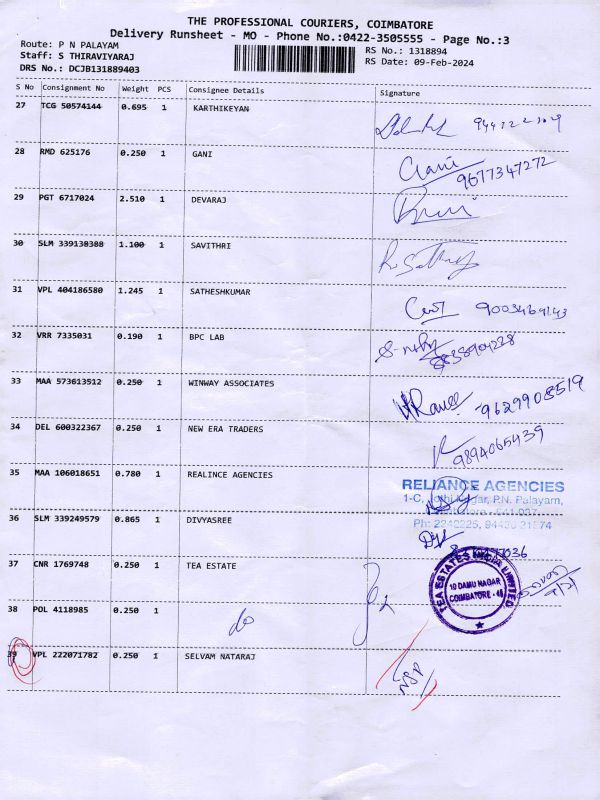 THE PROFESSIONAL COURIERS, COIMBATORE
Delivery Runsheet - MO - Phone No.:0422-3505555 - Page No.:3
Route: P N PALAYAM
Staff: S THIRAVIYARAJ
DRS No.: DCJB131889403
RS No.: 1318894
RS Date: 09-Feb-2024
S No Consignment No Weight PCS Consignee Details Signature
27 TCG 50574144 0.695 1 KARTHIKEYAN
28 RMD 625176 0.250 1 GANI Gani
9677347272
29 PGT 6717024 2.510 1 DEVARAJ
30 SLM 339130308 1.100 1 SAVITHRI
31 VPL 404186580 1.245 1 SATHESHKUMAR
9003469143
32 VRR 7335031 0.190 1 BPC LAB
8838904228
33 MAA 573613512 0.250 1 WINWAY ASSOCIATES
9629908519
34 DEL 600322367 0.250 1 NEW ERA TRADERS
9894065439
35 MAA 106018651 0.780 1 REALINCE AGENCIES
RELIANCE AGENCIES
P.N. Palayam,
Ph: 2240225, 94430 21574
36 SLM 339249579 0.865 1 DIVYASREE
37 CNR 1769748 0.250 1 TEA ESTATE
TEA ESTATES INDIA LIMITED
10 DAMU NAGAR
COIMBATORE - 45
38 POL 4118985 0.250 1 do
39 VPL 222071782 0.250 1 SELVAM NATARAJ
NSP